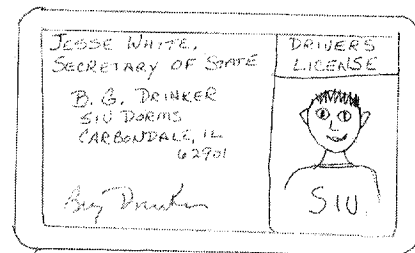 JESSE WHITE,
SECRETARY OF STATE
B. G. DRINKER
SIU DORMS
CARBONDALE, IL
62901
Big Drinker
DRIVERS
LICENSE
SIU